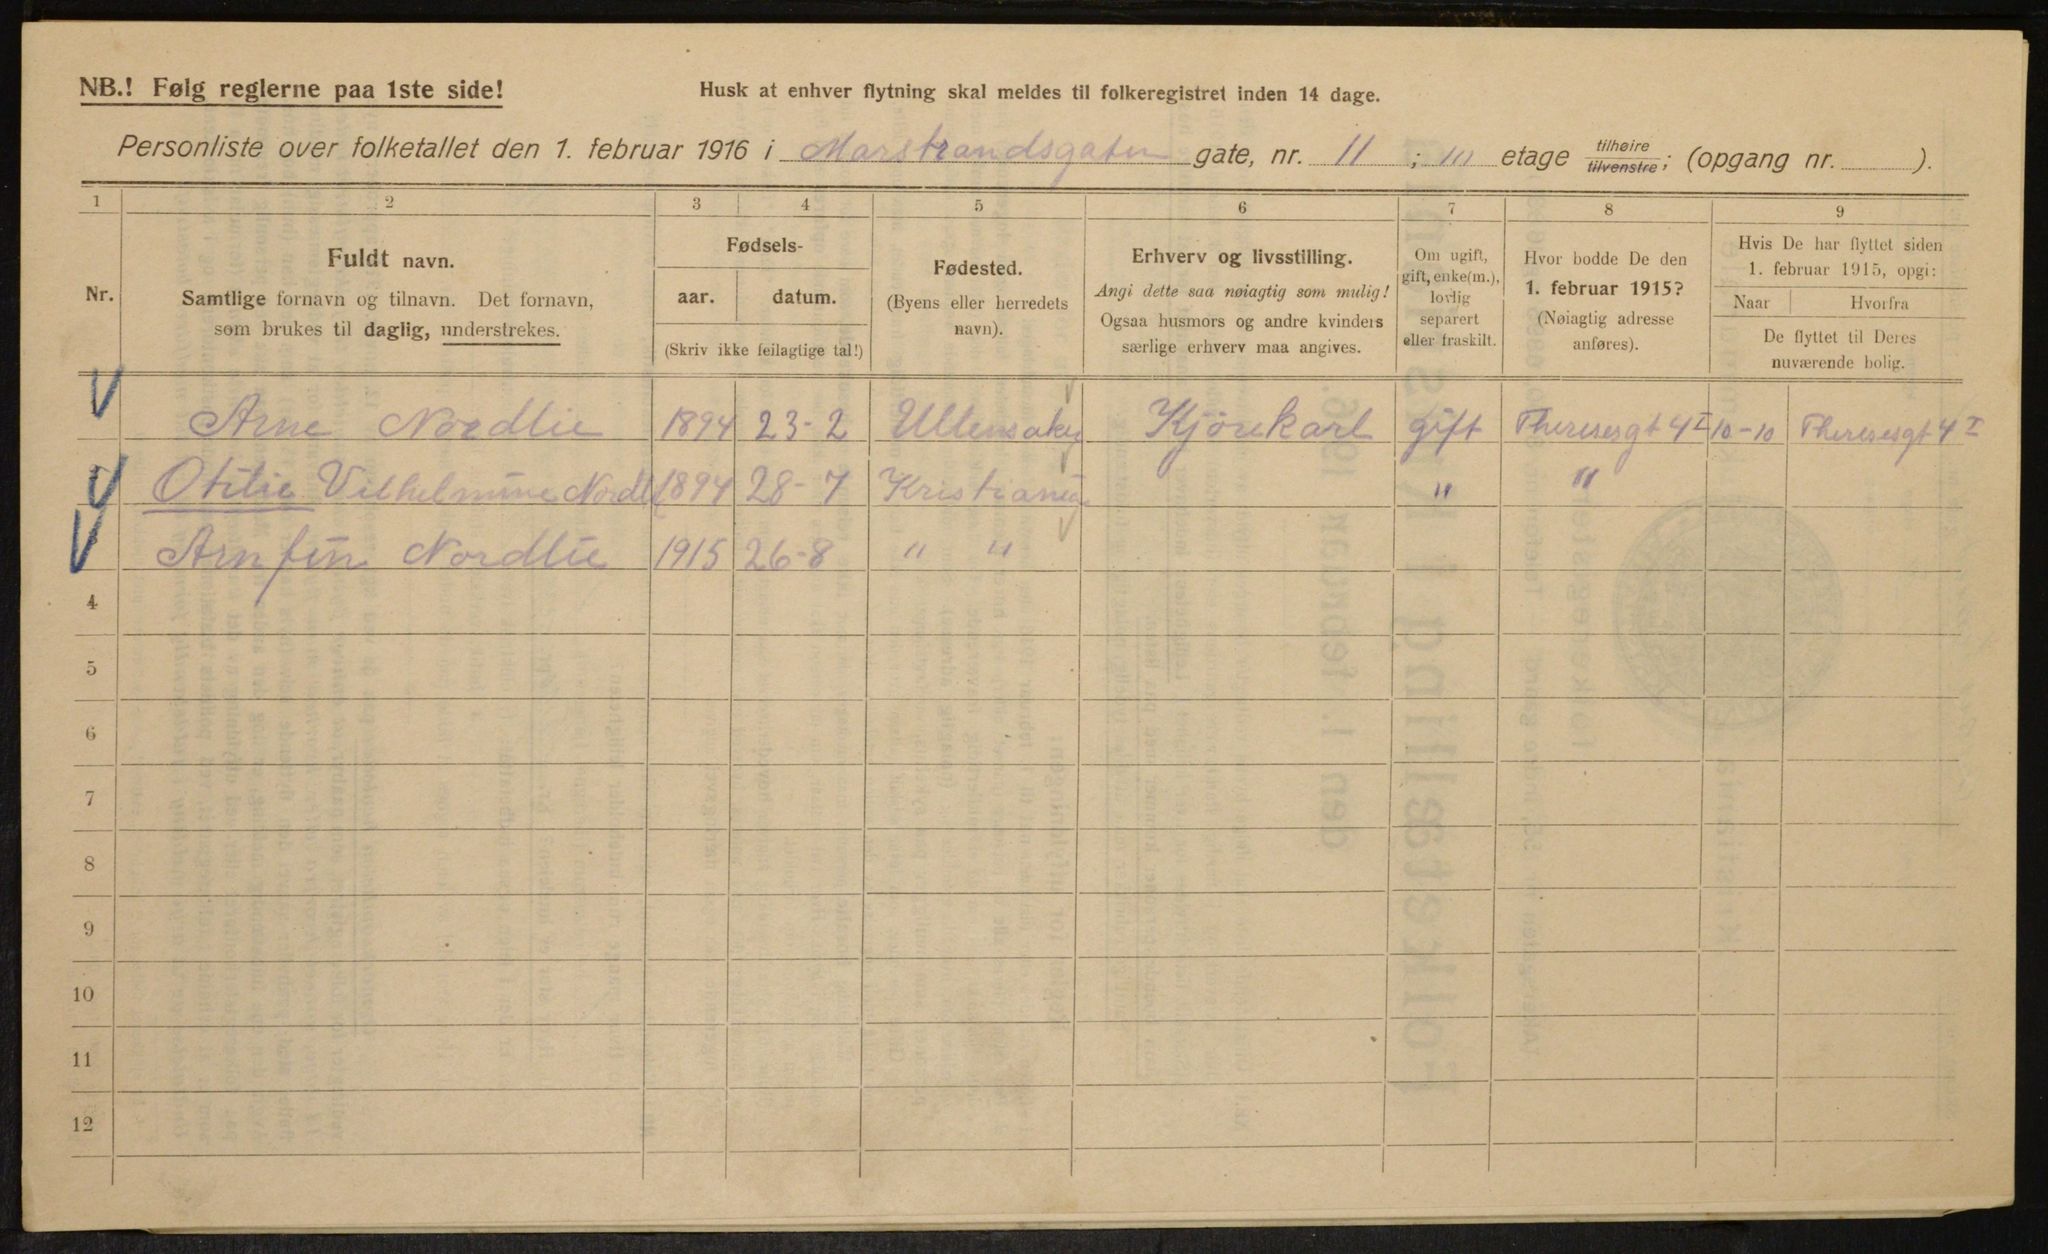 NB.! Følg reglerne paa 1ste side!
Husk at enhver flytning skal meldes til folkeregistret inden 14 dage.
Personliste over folketallet den 1. februar 1916 i Marstrandsgaten gate, nr. 11; III etage tilhøire tilvenstre; (opgang nr. ).
1 2 3 4 5 6 7 8 9
Nr.
Fuldt navn.
Samtlige fornavn og tilnavn. Det fornavn,
som brukes til daglig, understrekes.
Fødsels-
aar. datum.
(Skriv ikke feilagtige tal!)
Fødested.
(Byens eller herredets
navn).
Erhverv og livsstilling.
Angi dette saa nøiagtig som mulig!
Ogsaa husmors og andre kvinders
særlige erhverv maa angives.
Om ugift,
gift, enke(m.),
lovlig
separert
eller fraskilt.
Hvor bodde De den
1. februar 1915?
(Nøiagtig adresse
anføres).
Hvis De har flyttet siden
1. februar 1915, opgi:
Naar Hvorfra
De flyttet til Deres
nuværende bolig.
Arne Nordlie 1894 23-2 Ullensaker Kjørekarl gift Theresesgt 4 I 10-10 Theresesgt 4 I
Otilie Vilhelmine Nordlie 1894 28-7 Kristiania " "
Arnfin Nordlie 1915 26-8 " "
4
5
6
7
8
9
10
11
12